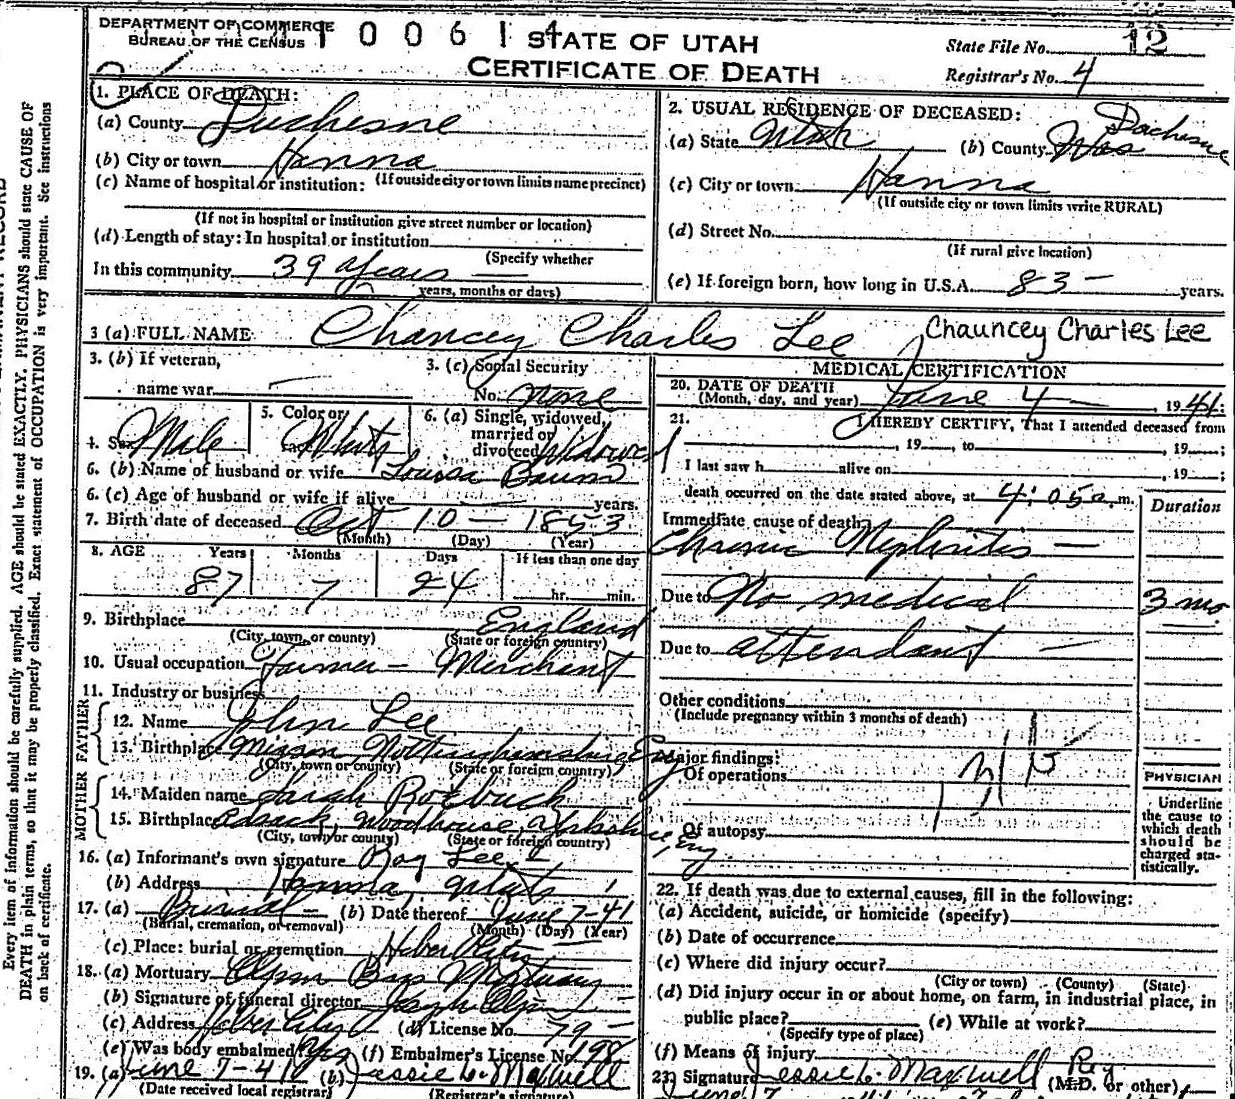 DEPARTMENT OF COMMERCE
BUREAU OF THE CENSUS
110061 4
STATE OF UTAH
CERTIFICATE OF DEATH
State File No. 12
Registrar's No. 4
Every item of information should be carefully supplied. AGE should be stated EXACTLY. PHYSICIANS should state CAUSE OF
DEATH in plain terms, so that it may be properly classified. Exact statement of OCCUPATION is very important. See instructions
on back of certificate.
1. PLACE OF DEATH:
(a) County Duchesne
(b) City or town Hanna
(c) Name of hospital or institution: (If outside city or town limits name precinct)
(If not in hospital or institution give street number or location)
(d) Length of stay: In hospital or institution
(Specify whether
In this community 39 years
years, months or days)
2. USUAL RESIDENCE OF DECEASED:
(a) State Utah (b) County Was Duchesne
(c) City or town Hanna
(If outside city or town limits write RURAL)
(d) Street No.
(If rural give location)
(e) If foreign born, how long in U.S.A. 83 - years.
3 (a) FULL NAME Chancey Charles Lee Chauncey Charles Lee
3. (b) If veteran,
name war
3. (c) Social Security
No. None
4. Sex Male
5. Color or
White
6. (a) Single, widowed,
married or
divorced Widowed
6. (b) Name of husband or wife Louisa Baum
6. (c) Age of husband or wife if alive years.
7. Birth date of deceased Oct 10 - 1853
(Month) (Day) (Year)
8. AGE Years Months Days If less than one day
87 7 24 hr. min.
9. Birthplace England
(City, town, or county) (State or foreign country)
10. Usual occupation Farmer - Merchant
11. Industry or business
FATHER
12. Name John Lee
13. Birthplace Nottinghamshire Eng
(City, town or county) (State or foreign country)
MOTHER
14. Maiden name Sarah Roebuck
15. Birthplace Woodhouse, Yorkshire, Eng
(City, town or county) (State or foreign country)
16. (a) Informant's own signature Ray Lee
(b) Address Hanna, Utah
17. (a) Burial - (b) Date thereof June 7-41
(Burial, cremation, or removal) (Month) (Day) (Year)
(c) Place: burial or cremation Heber City
18. (a) Mortuary Olpin Bros Mortuary
(b) Signature of funeral director Joseph Olpin
(c) Address Heber City (d) License No. 79 -
(e) Was body embalmed? Yes (f) Embalmer's License No. 198
19. (a) June 7-41 (b) Jessie L. Maxwell
(Date received local registrar) (Registrar's signature)
MEDICAL CERTIFICATION
20. DATE OF DEATH
(Month, day, and year) June 4 - , 1941;
21. I HEREBY CERTIFY, That I attended deceased from
, 19 , to , 19 ;
I last saw h alive on , 19 ;
death occurred on the date stated above, at 4:05 a. m.
Duration
Immediate cause of death
Chronic Nephritis -
Due to No medical 3 mo
Due to attendant -
Other conditions
(Include pregnancy within 3 months of death)
Major findings:
Of operations
Of autopsy
PHYSICIAN
Underline
the cause to
which death
should be
charged sta-
tistically.
22. If death was due to external causes, fill in the following:
(a) Accident, suicide, or homicide (specify)
(b) Date of occurrence
(c) Where did injury occur?
(City or town) (County) (State)
(d) Did injury occur in or about home, on farm, in industrial place, in
public place? (e) While at work?
(Specify type of place)
(f) Means of injury
23. Signature Jessie L. Maxwell Reg
(M.D. or other)
June 7